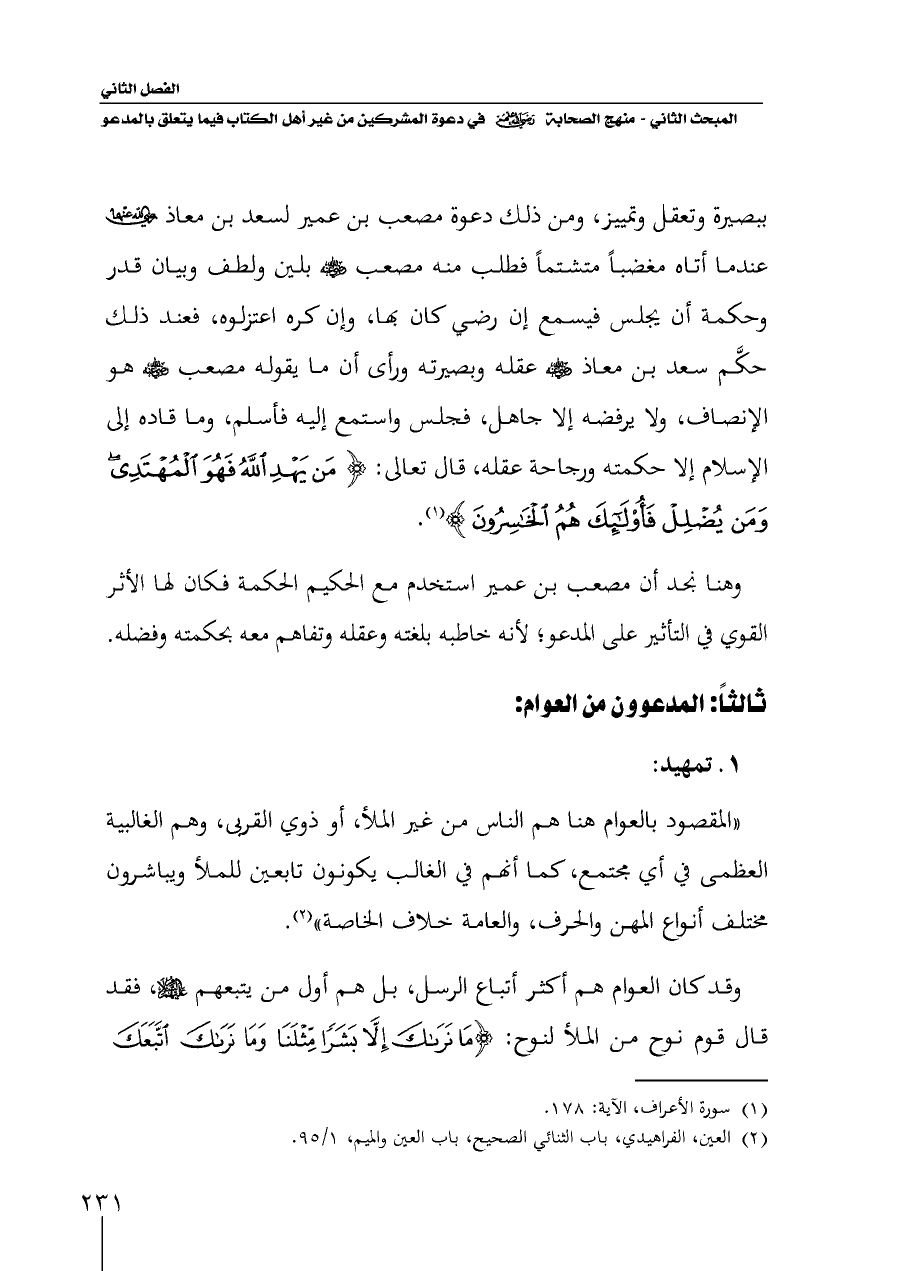 الفصل الثاني
المبحث الثاني - منهج الصحابة رضي الله عنهم في دعوة المشركين من غير أهل الكتاب فيما يتعلق بالمدعو
ببصيرة وتعقل وتمييز، ومن ذلك دعوة مصعب بن عمير لسعد بن معاذ رضي الله عنهما
عندما أتاه مغضباً متشتماً فطلب منه مصعب رضي الله عنه بلين ولطف وبيان قدر
وحكمة أن يجلس فيسمع إن رضي كان بها، وإن كره اعتزلوه، فعند ذلك
حكَّم سعد بن معاذ رضي الله عنه عقله وبصيرته ورأى أن ما يقوله مصعب رضي الله عنه هو
الإنصاف، ولا يرفضه إلا جاهل، فجلس واستمع إليه فأسلم، وما قاده إلى
الإسلام إلا حكمته ورجاحة عقله، قال تعالى: ﴿ مَن يَهْدِ ٱللَّهُ فَهُوَ ٱلْمُهْتَدِىۖ
وَمَن يُضْلِلْ فَأُو۟لَـٰٓئِكَ هُمُ ٱلْخَـٰسِرُونَ ﴾(١).
وهنا نجد أن مصعب بن عمير استخدم مع الحكيم الحكمة فكان لها الأثر
القوي في التأثير على المدعو؛ لأنه خاطبه بلغته وعقله وتفاهم معه بحكمته وفضله.
ثالثاً: المدعوون من العوام:
١. تمهيد:
«المقصود بالعوام هنا هم الناس من غير الملأ، أو ذوي القربى، وهم الغالبية
العظمى في أي مجتمع، كما أنهم في الغالب يكونون تابعين للملأ ويباشرون
مختلف أنواع المهن والحرف، والعامة خلاف الخاصة»(٢).
وقد كان العوام هم أكثر أتباع الرسل، بل هم أول من يتبعهم عليهم السلام، فقد
قال قوم نوح من الملأ لنوح: ﴿مَا نَرَىٰكَ إِلَّا بَشَرًا مِّثْلَنَا وَمَا نَرَىٰكَ ٱتَّبَعَكَ
(١) سورة الأعراف، الآية: ١٧٨.
(٢) العين، الفراهيدي، باب الثنائي الصحيح، باب العين والميم، ٩٥/١.
٢٣١